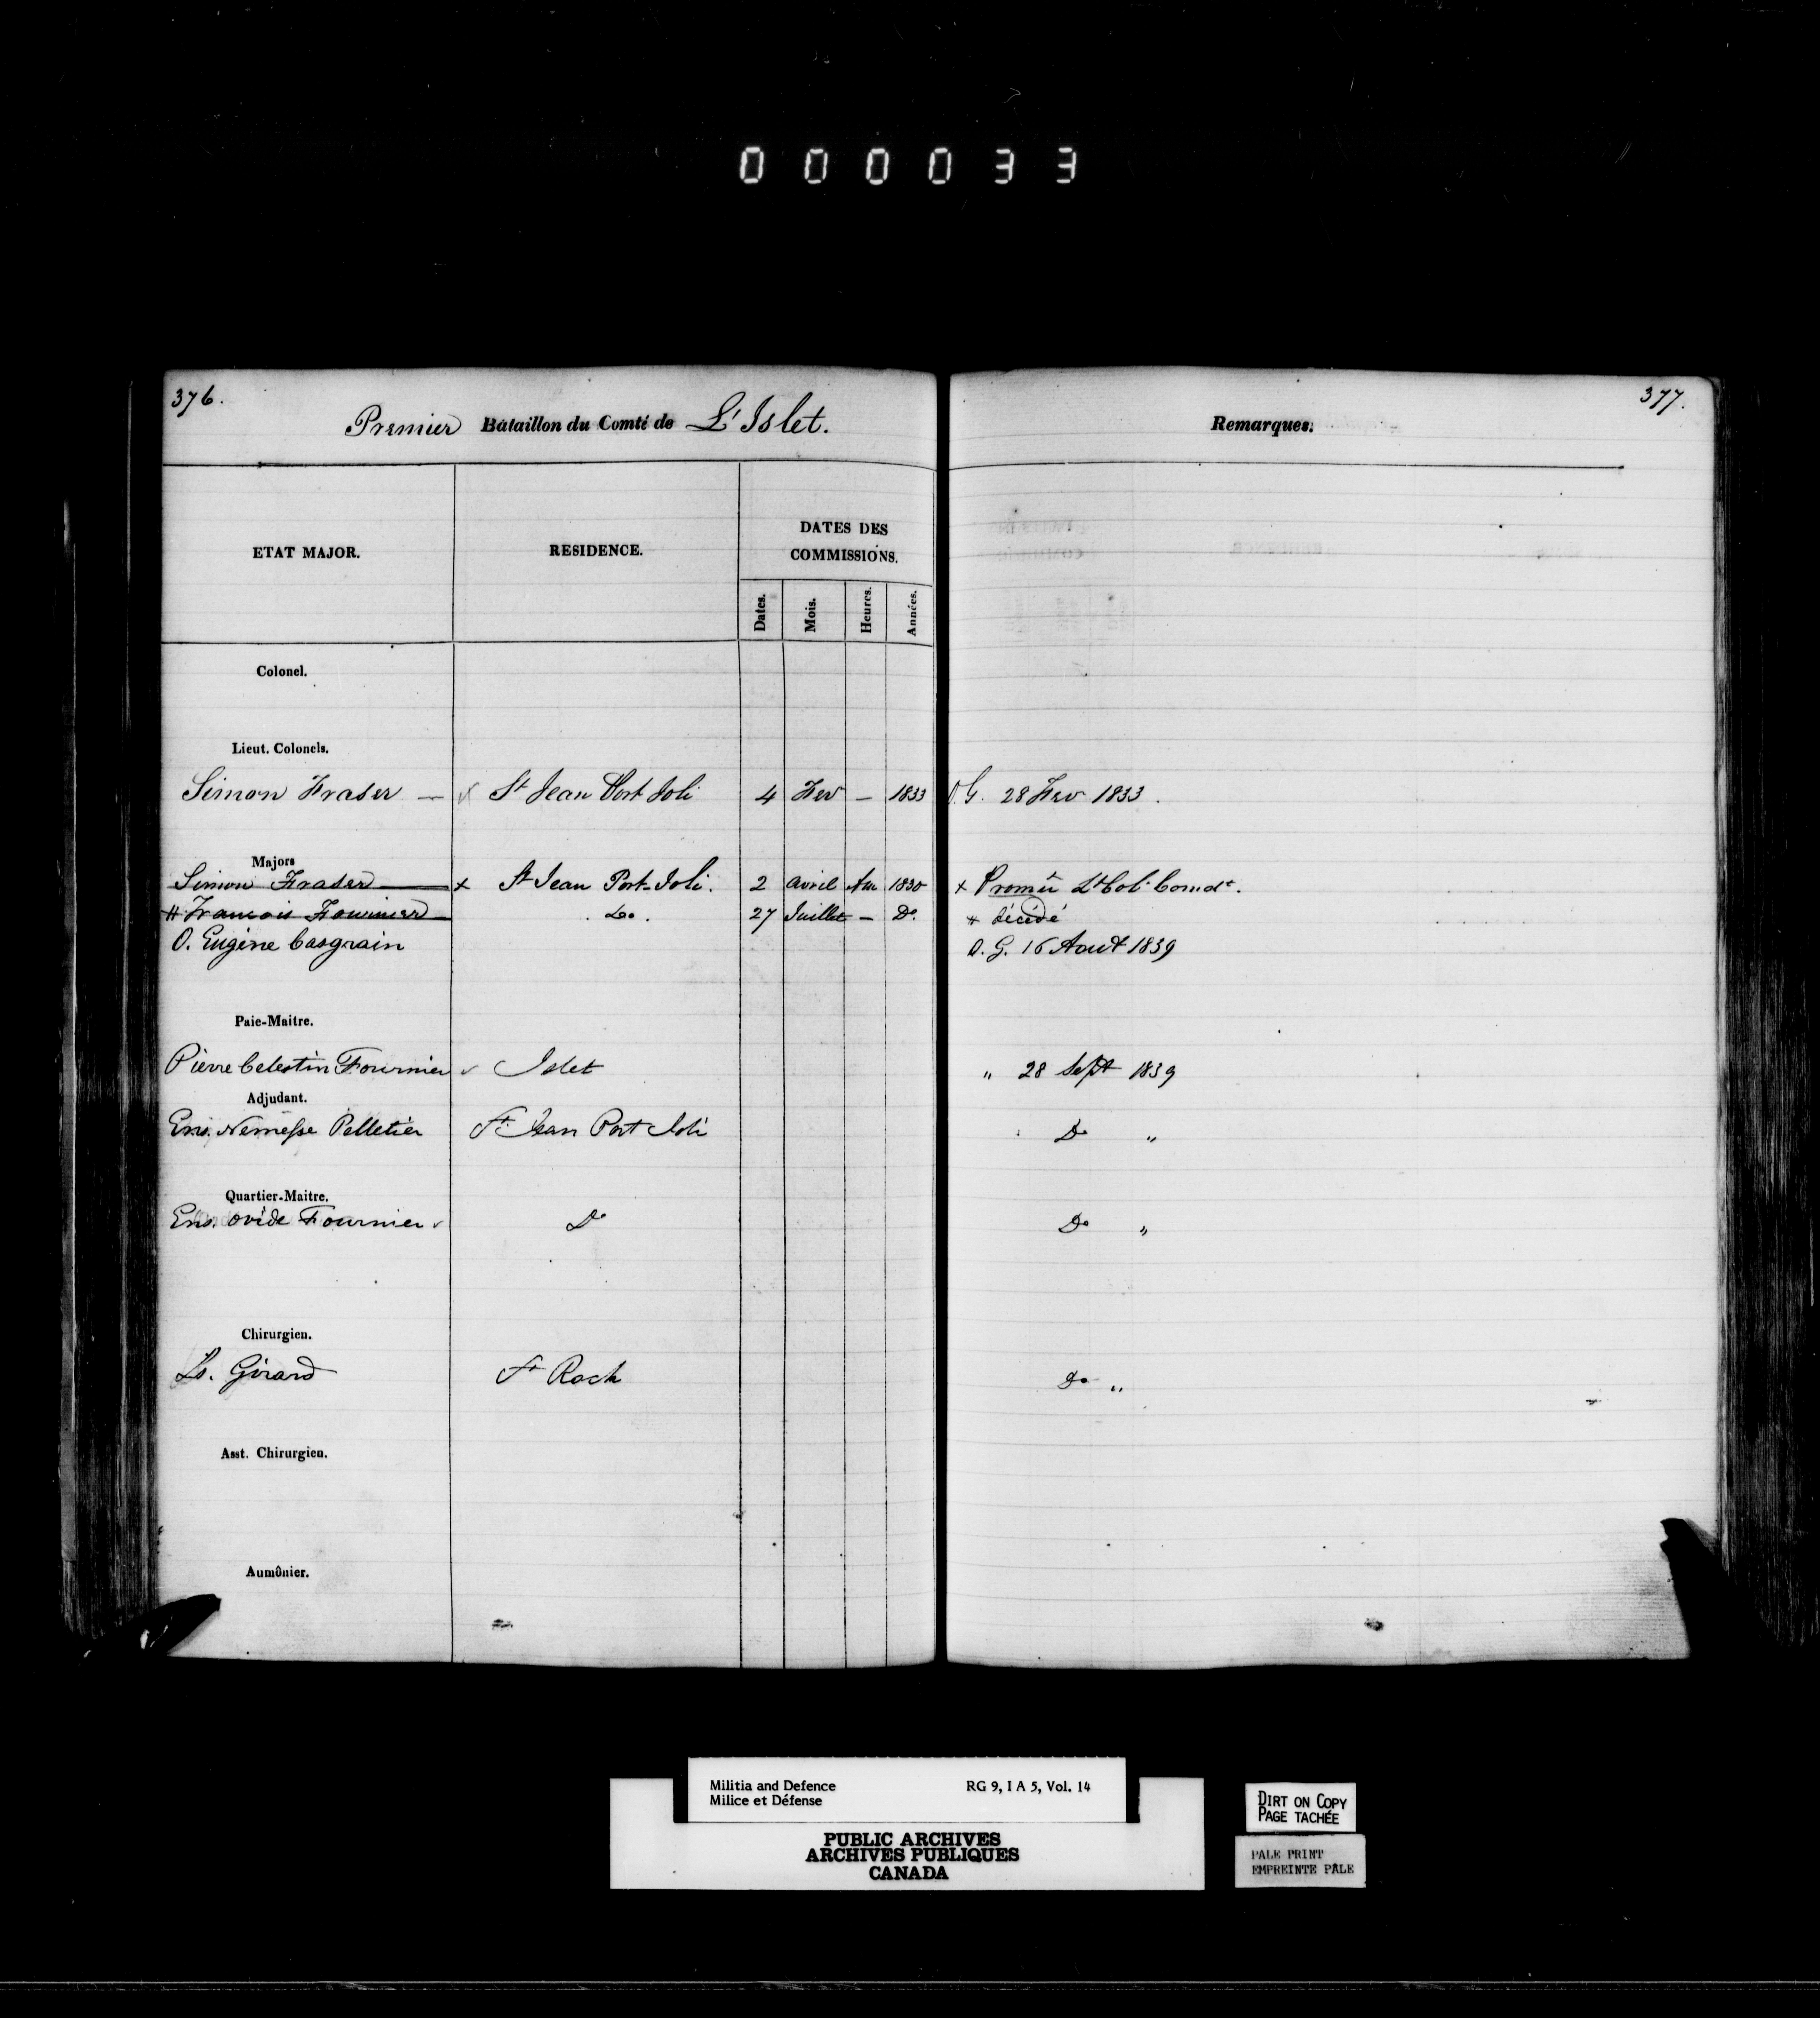 000033
376.
Premier Bataillon du Comté de L'Islet.
ETAT MAJOR.
RESIDENCE.
DATES DES
COMMISSIONS.
Dates.
Mois.
Heures.
Années.
Colonel.
Lieut. Colonels.
Simon Fraser — St Jean Port Joli 4 Fev — 1833
Majors
Simon Fraser x St Jean Port-Joli. 2 avril Am 1830
# Francois Fournier Do. 27 Juillet — Do
O. Eugène Casgrain
Paie-Maitre.
Pierre Celestin Fournier Islet
Adjudant.
Ens. Nemesse Pelletier St Jean Port Joli
Quartier-Maitre.
Ens. Ovide Fournier Do
Chirurgien.
Ls. Girard St Roch
Asst. Chirurgien.
Aumônier.
377.
Remarques.
O.G. 28 Fev 1833.
x Promû Lt Col. Comdt.
# décédé
O.G. 16 Aout 1839
" 28 Sept 1839
Do "
Do "
Do "
Militia and Defence RG 9, I A 5, Vol. 14
Milice et Défense
PUBLIC ARCHIVES
ARCHIVES PUBLIQUES
CANADA
DIRT ON COPY
PAGE TACHÉE
PALE PRINT
EMPREINTE PÂLE